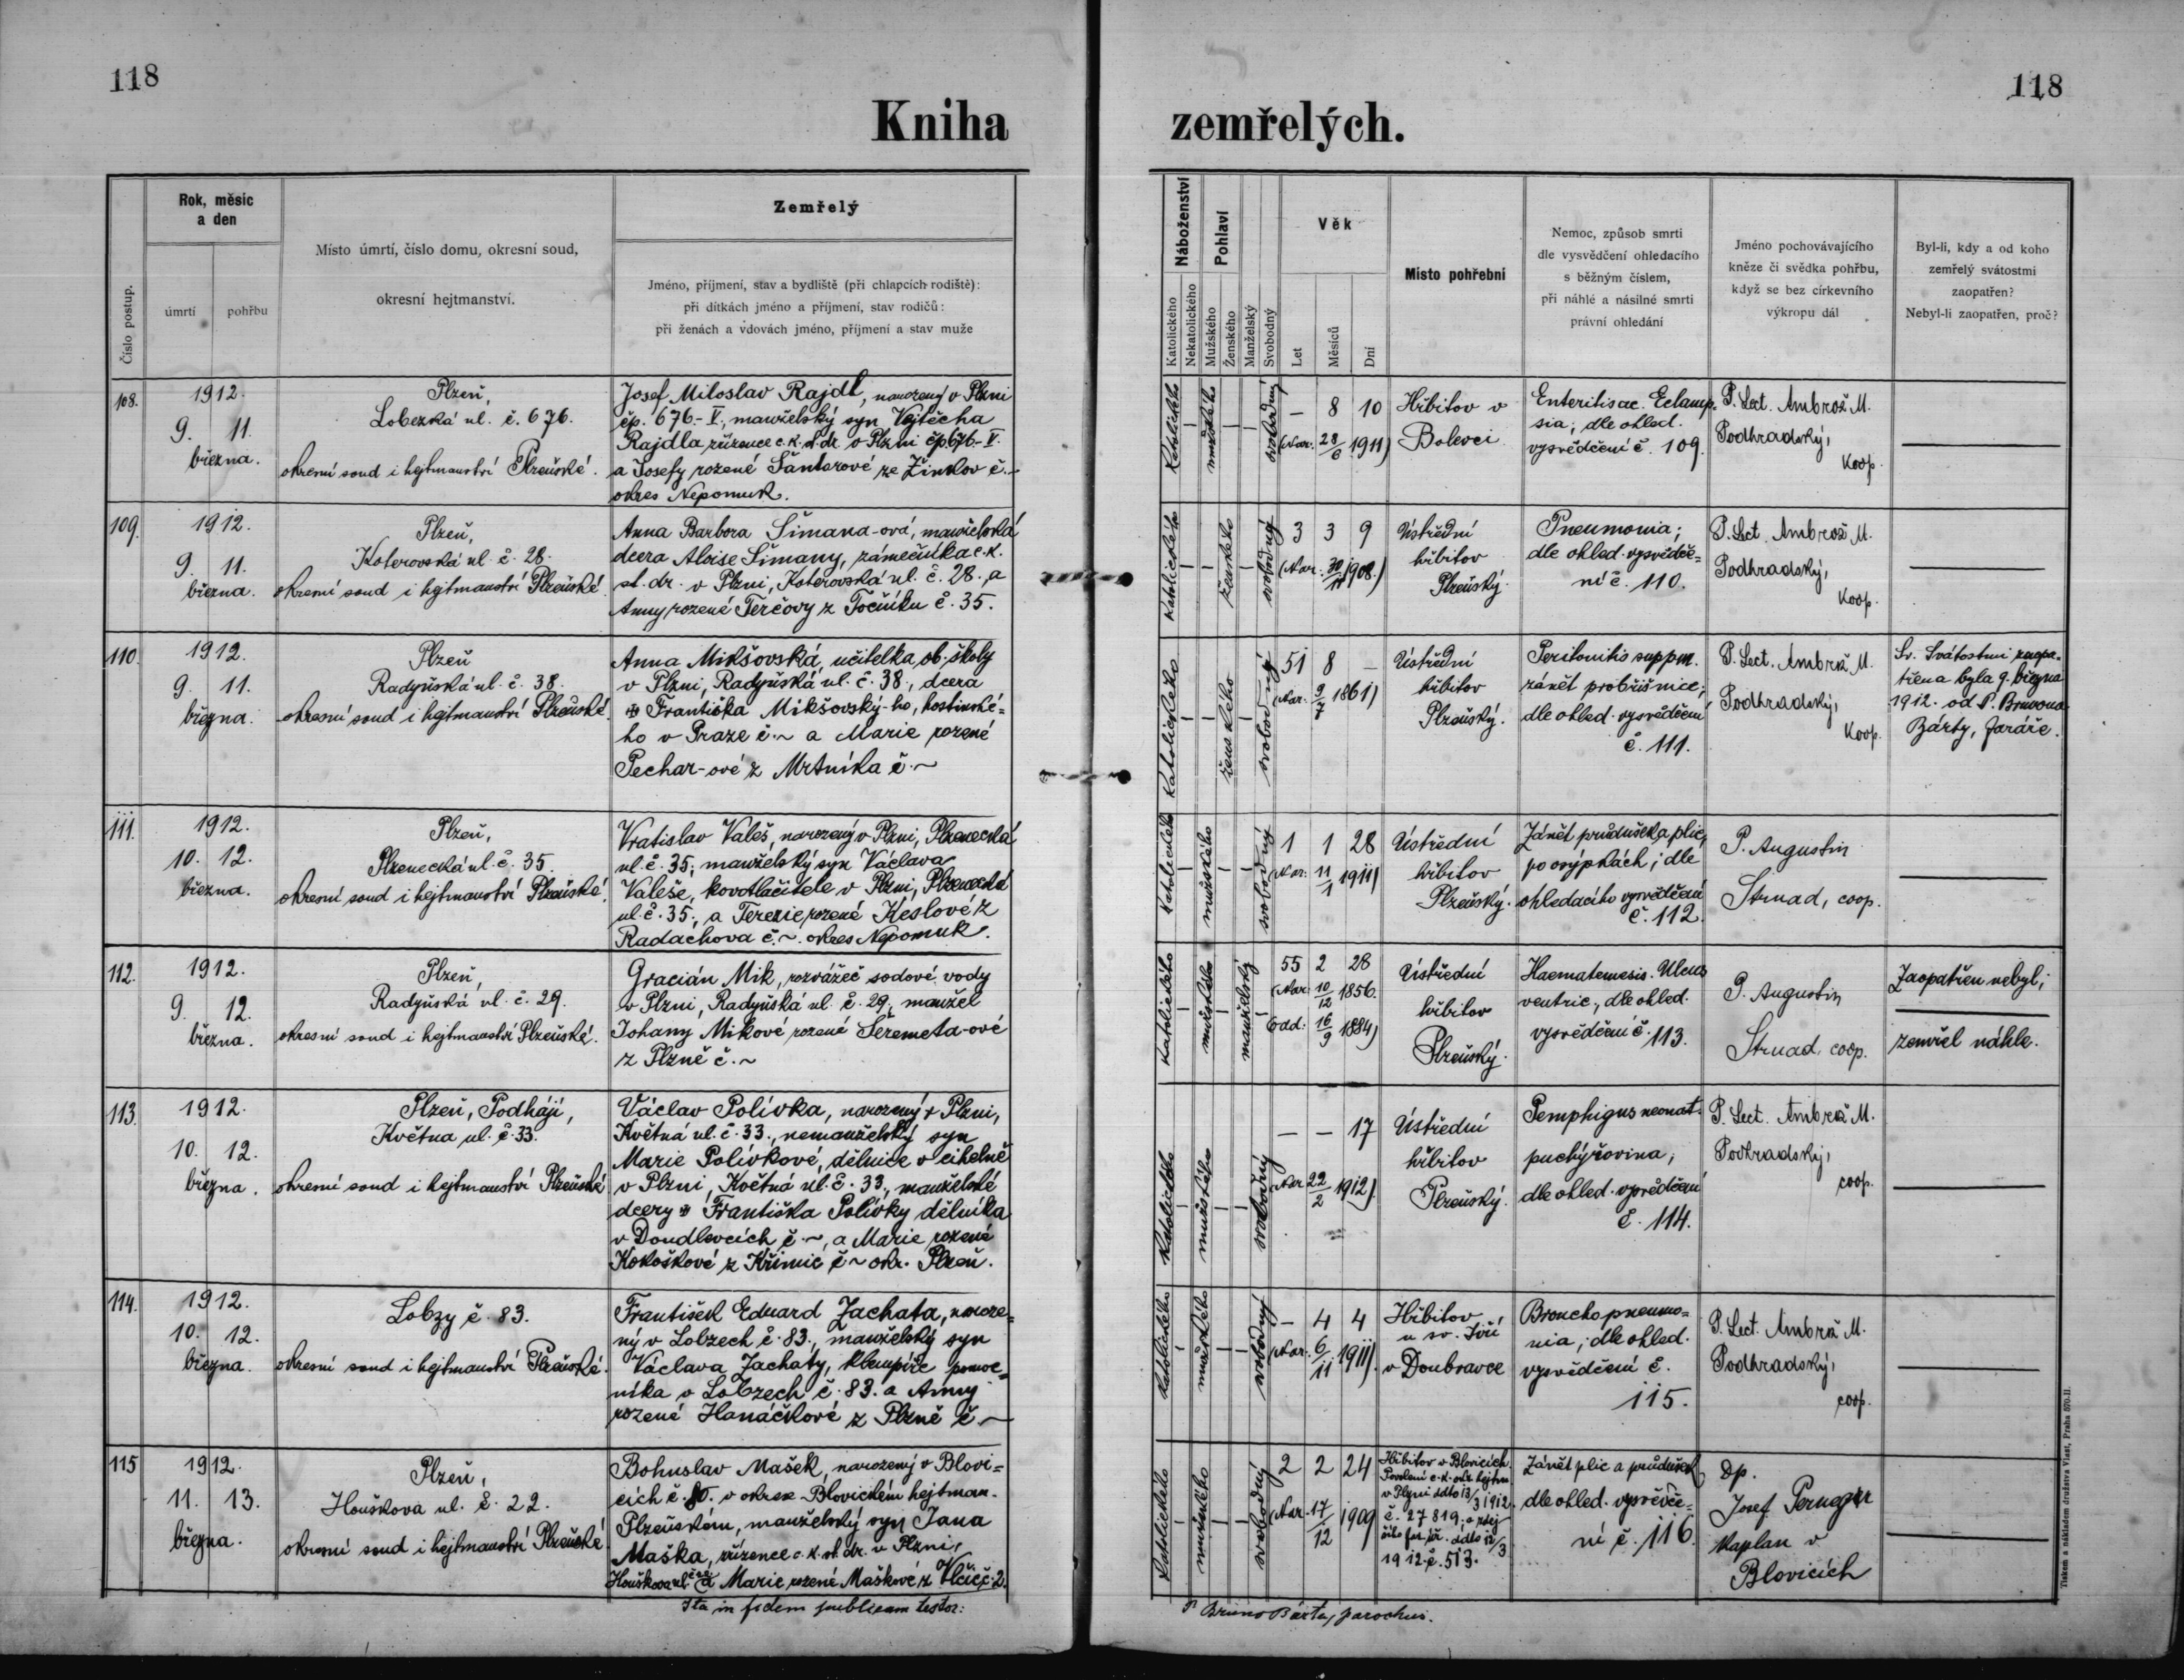 118
118
Kniha
zemřelých.
Číslo postup.
Rok, měsíc
a den
úmrtí
pohřbu
Místo úmrtí, číslo domu, okresní soud,
okresní hejtmanství.
Zemřelý
Jméno, příjmení, stav a bydliště (při chlapcích rodiště):
při dítkách jméno a příjmení, stav rodičů:
při ženách a vdovách jméno, příjmení a stav muže
Náboženství
Katolického
Nekatolického
Pohlaví
Mužského
Ženského
Manželský
Svobodný
Věk
Let
Měsíců
Dní
Místo pohřební
Nemoc, způsob smrti
dle vysvědčení ohledacího
s běžným číslem,
při náhlé a násilné smrti
právní ohledání
Jméno pochovávajícího
kněze či svědka pohřbu,
když se bez církevního
výkropu dál
Byl-li, kdy a od koho
zemřelý svátostmi
zaopatřen?
Nebyl-li zaopatřen, proč?
108.
1912.
9. 11.
března.
Plzeň,
Lobezká ul. č. 676.
okresní soud i hejtmanství Plzeňské.
Josef Miloslav Rajdl, narozený v Plzni
čp. 676-V., manželský syn Vojtěcha
Rajdla zřízence c.k. st. dr. v Plzni čp. 676-V.
a Josefy rozené Šantorové ze Žinkov č. ~
okres Nepomuk.
Katolického
mužského
svobodný
— 8 10
(Nar. 28/6 1911)
Hřbitov v
Bolevci
Enteritis ac. Eclamp-
sia; dle ohled.
vysvědčení č. 109.
P. Lect. Ambrož M.
Podhradský,
koop.
109.
1912.
9. 11.
března.
Plzeň,
Koterovská ul. č. 28.
okresní soud i hejtmanství Plzeňské.
Anna Barbora Šimana-ová, manželská
dcera Aloise Šimany, zámečníka c.k.
st. dr. v Plzni, Koterovská ul. č. 28. a
Anny rozené Terčovy z Točníku č. 35.
Katolického
ženského
svobodný
3 3 9
(Nar. 30/11 1908.)
Ústřední
hřbitov
Plzeňský.
Pneumonia;
dle ohled. vysvědče-
ní č. 110.
P. Lect. Ambrož M.
Podhradský,
koop.
110.
1912.
9. 11.
března.
Plzeň
Radyňská ul. č. 38.
okresní soud i hejtmanství Plzeňské.
Anna Mikšovská, učitelka ob. školy
v Plzni, Radyňská ul. č. 38., dcera
✠ Františka Mikšovský-ho, hostinské-
ho v Praze č. ~ a Marie rozené
Pechar-ové z Mrtníka č. ~
Katolického
ženského
svobodný
51 8 —
(Nar. 9/7 1861)
Ústřední
hřbitov
Plzeňský.
Peritonitis suppm.
zánět pobřišnice;
dle ohled. vysvědčení
č. 111.
P. Lect. Ambrož M.
Podhradský,
koop.
Sv. Svátostmi zaopa-
třena byla 9. března
1912. od P. Brunona
Bárty, faráře.
111.
1912.
10. 12.
března.
Plzeň,
Plzenecká ul. č. 35.
okresní soud i hejtmanství Plzeňské.
Vratislav Valeš, narozený v Plzni, Plzenecká
ul. č. 35; manželský syn Václava
Valeše, kovotlačitele v Plzni, Plzenecká
ul. č. 35., a Terezie rozené Keslové z
Radáchova č. ~. okres Nepomuk.
Katolického
mužského
svobodný
1 1 28
(Nar. 11/1 1911)
Ústřední
hřbitov
Plzeňský.
Zánět průdušek a plic,
po osýpkách; dle
ohledacího vysvědčení
č. 112.
P. Augustin
Strnad, coop.
112.
1912.
9. 12.
března.
Plzeň,
Radyňská ul. č. 29.
okresní soud i hejtmanství Plzeňské.
Gracián Mik, rozvážeč sodové vody
v Plzni, Radyňská ul. č. 29, manžel
Johany Mikové rozené Šeremeta-ové
z Plzně č. ~
Katolického
mužského
manželský
55 2 28
(Nar. 10/12 1856.
Odd. 16/9 1884)
Ústřední
hřbitov
Plzeňský.
Haematemesis. Ulcus
ventric., dle ohled.
vysvědčení č. 113.
P. Augustin
Strnad, coop.
Zaopatřen nebyl;
zemřel náhle.
113.
1912.
10. 12.
března.
Plzeň, Podhájí,
Květná ul. č. 33.
okresní soud i hejtmanství Plzeňské
Václav Polívka, narozený v Plzni,
Květná ul. č. 33., nemanželský syn
Marie Polívkové, dělnice v cihelně
v Plzni, Květná ul. č. 33., manželské
dcery ✠ Františka Polívky dělníka
v Doudlevcích č. ~, a Marie rozené
Kokoškové z Křimic č ~ okr. Plzeň.
Katolického
mužského
svobodný
— — 17
(Nar 22/2 1912)
Ústřední
hřbitov
Plzeňský.
Pemphigus neonat.
puchýřovina;
dle ohled. vysvědčení
č. 114.
P. Lect. Ambrož M.
Podhradský,
coop.
114.
1912.
10. 12.
března.
Lobzy č. 83.
okresní soud i hejtmanství Plzeňské.
František Eduard Zachata, naroze-
ný v Lobzech č. 83., manželský syn
Václava Zachaty, klempíře pomoc-
níka v Lobzech č. 83. a Anny
rozené Hanáčkové z Plzně č ~
Katolického
mužského
svobodný
— 4 4
(Nar. 6/11 1911).
Hřbitov
u sv. Jiří
v Doubravce
Bronchopneumo-
nia; dle ohled.
vysvědčení č.
115.
P. Lect. Ambrož M.
Podhradský,
coop.
115
1912.
11. 13.
března.
Plzeň,
Houškova ul. č. 22.
okresní soud i hejtmanství Plzeňské
Bohuslav Mašek, narozený v Blovi-
cích č. 80. v okrese Blovickém hejtman.
Plzeňském, manželský syn Jana
Maška, zřízence c.k. st. dr. v Plzni,
Houškova ul. č 22 a Marie rozené Maškové z Vlčic č. 2.
Katolického
mužského
svobodný
2 2 24
(Nar. 17/12 1909
Hřbitov v Blovicích
Povolení c.k. okr. hejtm.
v Plzni ddto 13/3 1912.
č. 27819; a zdej-
1912. č. 513.
Zánět plic a průdušek
dle ohled. vysvědče-
ní č. 116.
Dp.
Josef
Kaplan v
Blovicích
Ita in fidem publicam testor:
P. Bruno Bárta, parochus.
Tiskem a nákladem družstva Vlast, Praha 570-II.